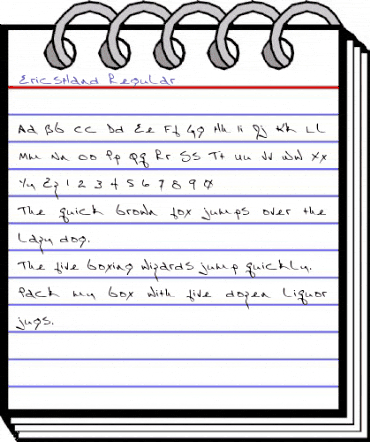 EricsHand Regular
Aa Bb Cc Dd Ee Ff Gg Hh Ii Jj Kk Ll
Mm Nn Oo Pp Qq Rr Ss Tt Uu Vv Ww Xx
Yy Zz 1 2 3 4 5 6 7 8 9 0
The quick brown fox jumps over the
lazy dog.
The five boxing wizards jump quickly.
Pack my box with five dozen liquor
jugs.